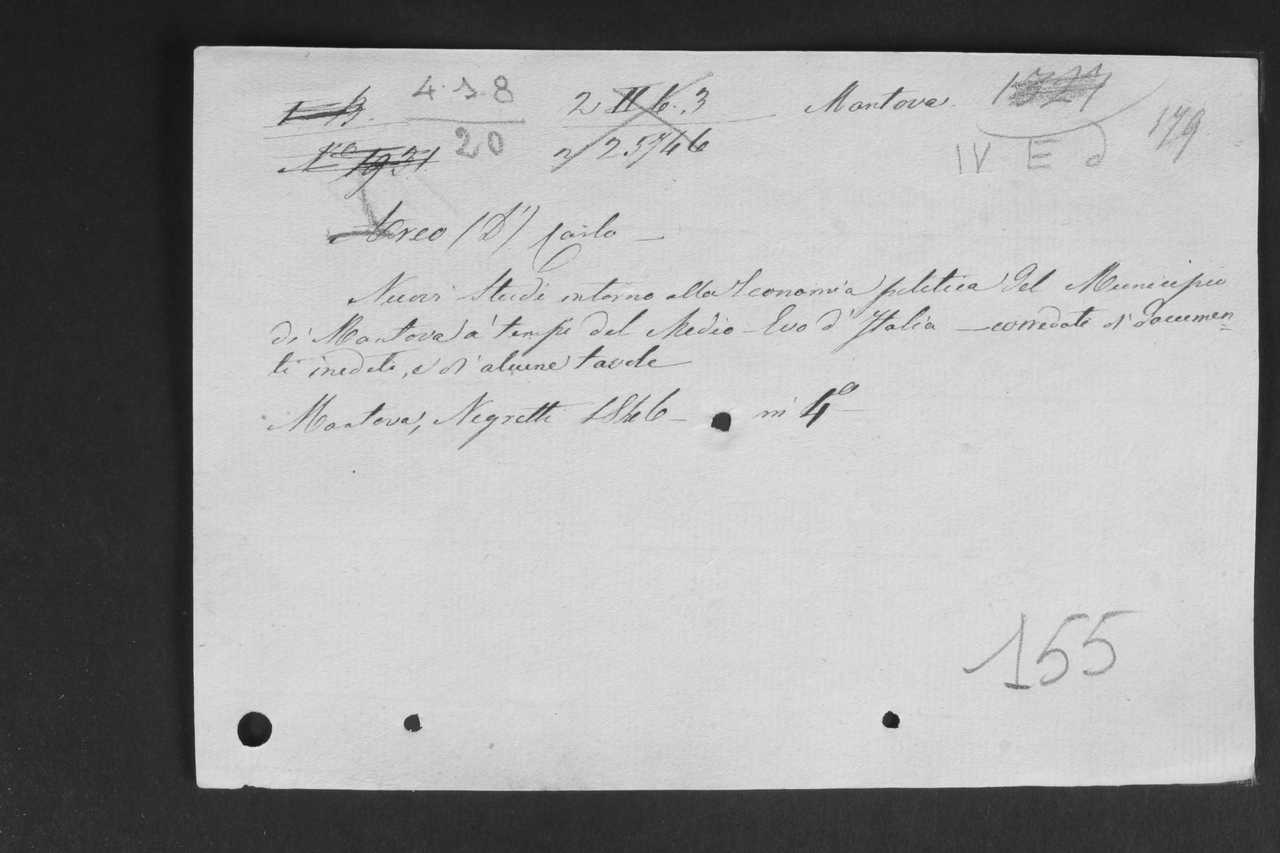 4.1.8 2 II 6.3 Mantova.
20 2 25746 IV E d 179
N.º 1931
Arco (D') Carlo —
Nuovi Studi intorno alla Economia politica del Municipio
di Mantova a' tempi del Medio-Evo d'Italia — corredati di documen=
ti inediti, e d'alcune tavole
Mantova, Negretti 1846 — in 4º —
155